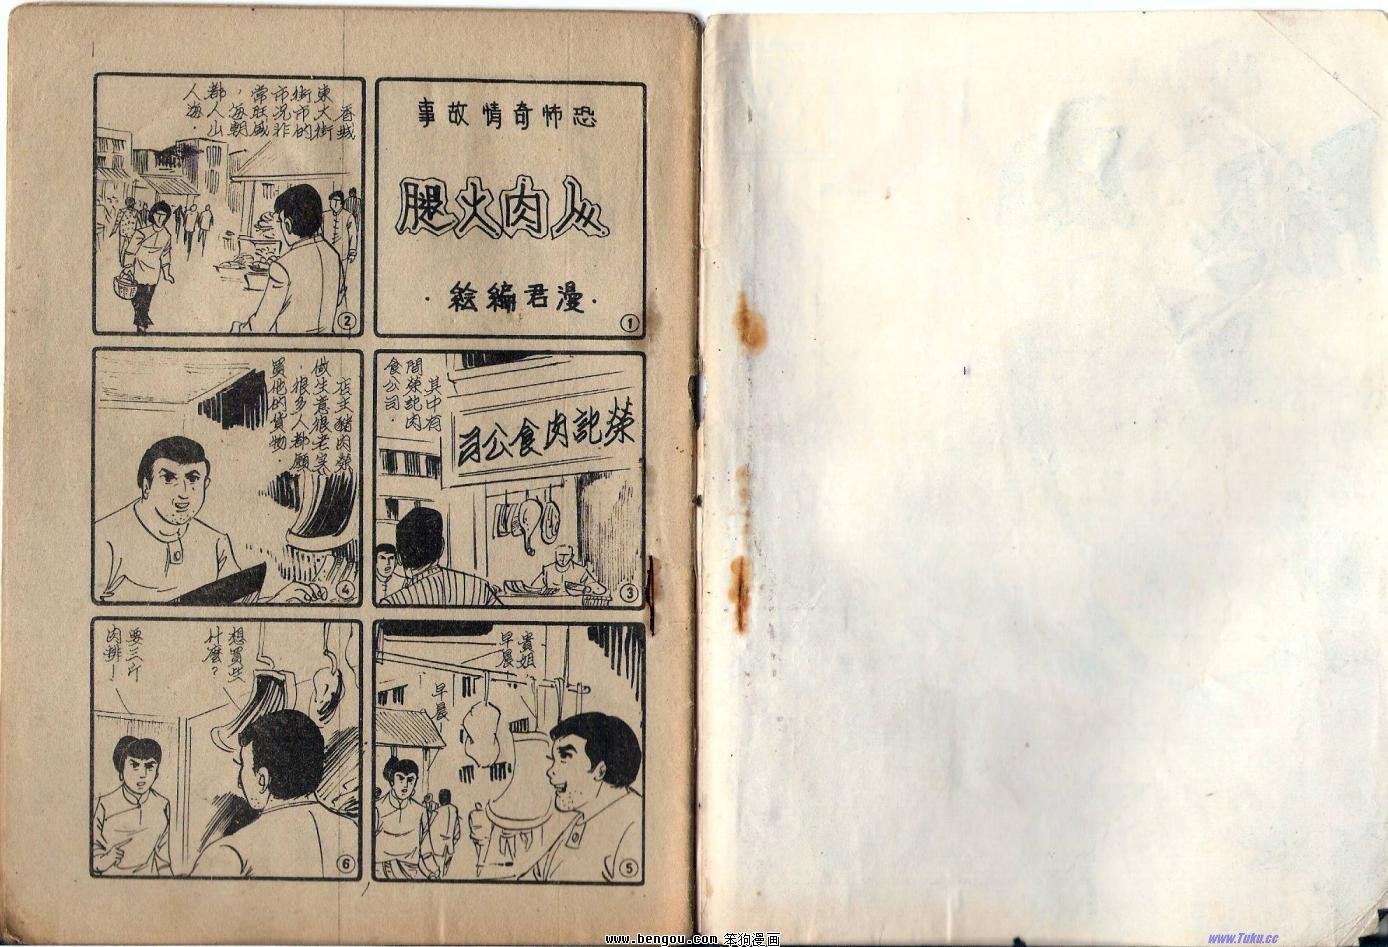 恐怖奇情故事
人肉火腿
·漫君編繪·
①
香城
東大街
街市的
市况非
常旺盛
，每朝
都人山
人海．
②
其中有
間荣記肉
食公司．
荣記肉食公司
③
店主豬肉荣
做生意很老实
，很多人都願
買他的貨物．
④
貴姐
早晨
早晨！
⑤
想買些
什麽？
要三斤
肉排！
⑥
www.bengou.com 笨狗漫画
www.Tuku.cc